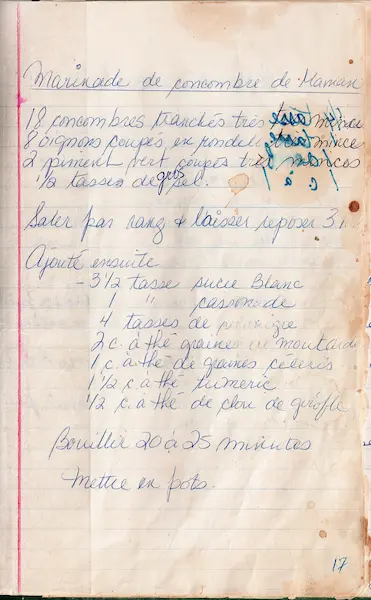 Marinade de concombre de Maman
18 concombres tranchés très mince
8 oignons coupés en rondelle mince
2 piment vert coupés très minces
1/2 tasses de gros sel.
Saler par rang & laisser reposer 3
Ajouté ensuite
- 3 1/2 tasse sucre Blanc
1 " cassonade
4 tasses de vinaigre
2 c. à thé graines de moutarde
1 c. à thé de graines céleris
1 1/2 c. à thé tumeric
1/2 c. à thé de clou de girofle
Bouillir 20 à 25 minutes
Mettre en pots.
17